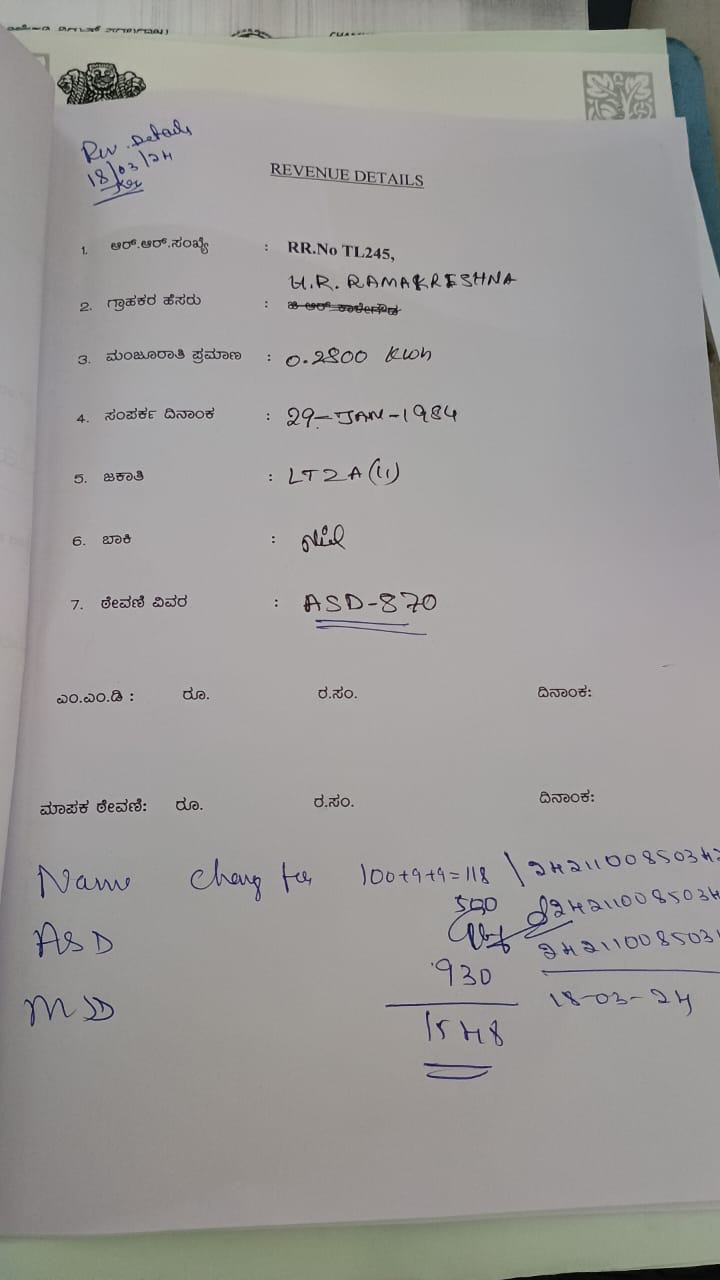 Rev. Details
18/03/24
REVENUE DETAILS
1. ಆರ್.ಆರ್.ಸಂಖ್ಯೆ : RR.No TL245,
H.R. RAMAKRISHNA
2. ಗ್ರಾಹಕರ ಹೆಸರು :
3. ಮಂಜೂರಾತಿ ಪ್ರಮಾಣ : 0.2800 KWh
4. ಸಂಪರ್ಕ ದಿನಾಂಕ : 29-JAN-1984
5. ಜಕಾತಿ : LT2A(ii)
6. ಬಾಕಿ : Nil
7. ಠೇವಣಿ ವಿವರ : ASD-870
ಎಂ.ಎಂ.ಡಿ : ರೂ. ರ.ಸಂ. ದಿನಾಂಕ:
ಮಾಪಕ ಠೇವಣಿ: ರೂ. ರ.ಸಂ. ದಿನಾಂಕ:
Name Chang fee 100+9+9=118
ASD 500
MSD 930
18-03-24
1548